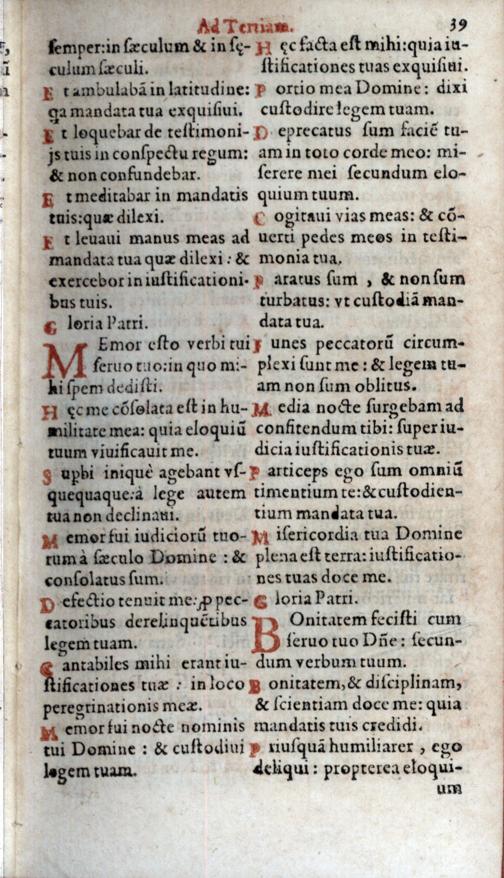 Ad Tertiam. 39
semper:in sæculum & in sę-
culum sæculi.
E t ambulabā in latitudine:
qa mandata tua exquisiui.
E t loquebar de testimoni-
js tuis in conspectu regum:
& non confundebar.
E t meditabar in mandatis
tuis:quæ dilexi.
E t leuaui manus meas ad
mandata tua quæ dilexi : &
exercebor in iustificationi-
bus tuis.
G loria Patri.
MEmor esto verbi tui
seruo tuo:in quo mi-
hi spem dedisti.
H ęc me cōsolata est in hu-
militate mea: quia eloquiū
tuum viuificauit me.
S upbi iniquè agebant vs-
quequaque:à lege autem
tua non declinaui.
M emor fui iudiciorū tuo-
rum à sæculo Domine : &
consolatus sum.
D efectio tenuit me: ꝓ pec-
catoribus derelinquētibus
legem tuam.
C antabiles mihi erant iu-
stificationes tuæ : in loco
peregrinationis meæ.
M emor fui nocte nominis
tui Domine : & custodiui
legem tuam.
H ęc facta est mihi:quia iu-
stificationes tuas exquisiui.
P ortio mea Domine : dixi
custodire legem tuam.
D eprecatus sum faciē tu-
am in toto corde meo: mi-
serere mei secundum elo-
quium tuum.
C ogitaui vias meas: & cō-
uerti pedes meos in testi-
monia tua.
P aratus sum , & non sum
turbatus: vt custodiā man-
data tua.
F unes peccatorū circum-
plexi sunt me : & legem tu-
am non sum oblitus.
M edia nocte surgebam ad
confitendum tibi: super iu-
dicia iustificationis tuæ.
P articeps ego sum omniū
timentium te:& custodien-
tium mandata tua.
M isericordia tua Domine
plena est terra: iustificatio-
nes tuas doce me.
G loria Patri.
BOnitatem fecisti cum
seruo tuo Dñe: secun-
dum verbum tuum.
B onitatem,& disciplinam,
& scientiam doce me: quia
mandatis tuis credidi.
P riusquā humiliarer , ego
deliqui : propterea eloqui-
um